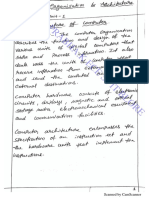 Organization & Architecture
Unit-1
Structure of Computer
The Computer Organization
describes the function and design of the
various units of digital computers that
store and process information. It also
deals with the units of computer that
receive information from external sources
and send the computed results to
external destinations.
Computer hardware consists of electronic
circuits, displays, magnetic and optical
storage media, electromechanical equipment
and communication facilities.
Computer architecture encompasses the
specification of an instruction set and
the hardware units that implement the
instructions.
Scanned by CamScanner